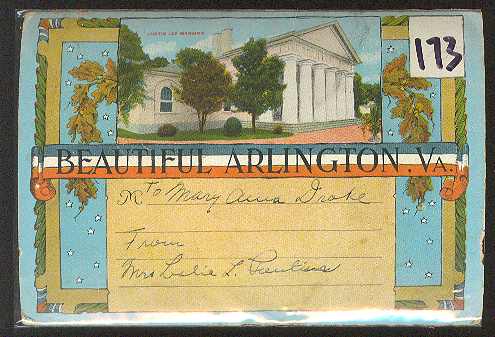 CUSTIS LEE MANSION
173
BEAUTIFUL ARLINGTON, VA.
To Mary Anna Drake
From
Mrs Leslie L.